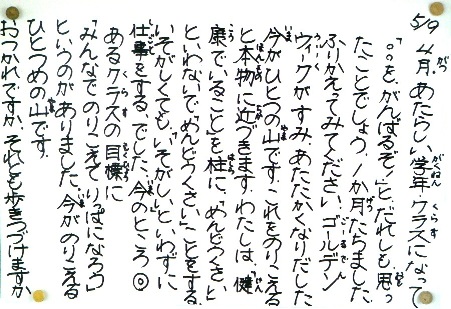 5/9 4月。あたらしい学年・クラスになって
「○○を、がんばるぞ！」と、だれしも、思っ
たことでしょう。1か月たちました。
ふりかえてみてください。ゴールデン
ウィークがすみ、あたたかくなりだした
今がひとつの山です。これをのりこえる
と本物に近づきます。わたしは、「健
康でいること」を柱に、「めんどうくさい」
といわないで「めんどうくさい」ことをする。
いそがしくても、「いそがしい」といわずに
仕事をする、でした。今のところ◎
あるクラスの目標に
「みんなでのりこえて りっぱになろう」
というのがありました。今がのりこえる
ひとつめの山です。
おつかれですか、それとも歩きつづけますか